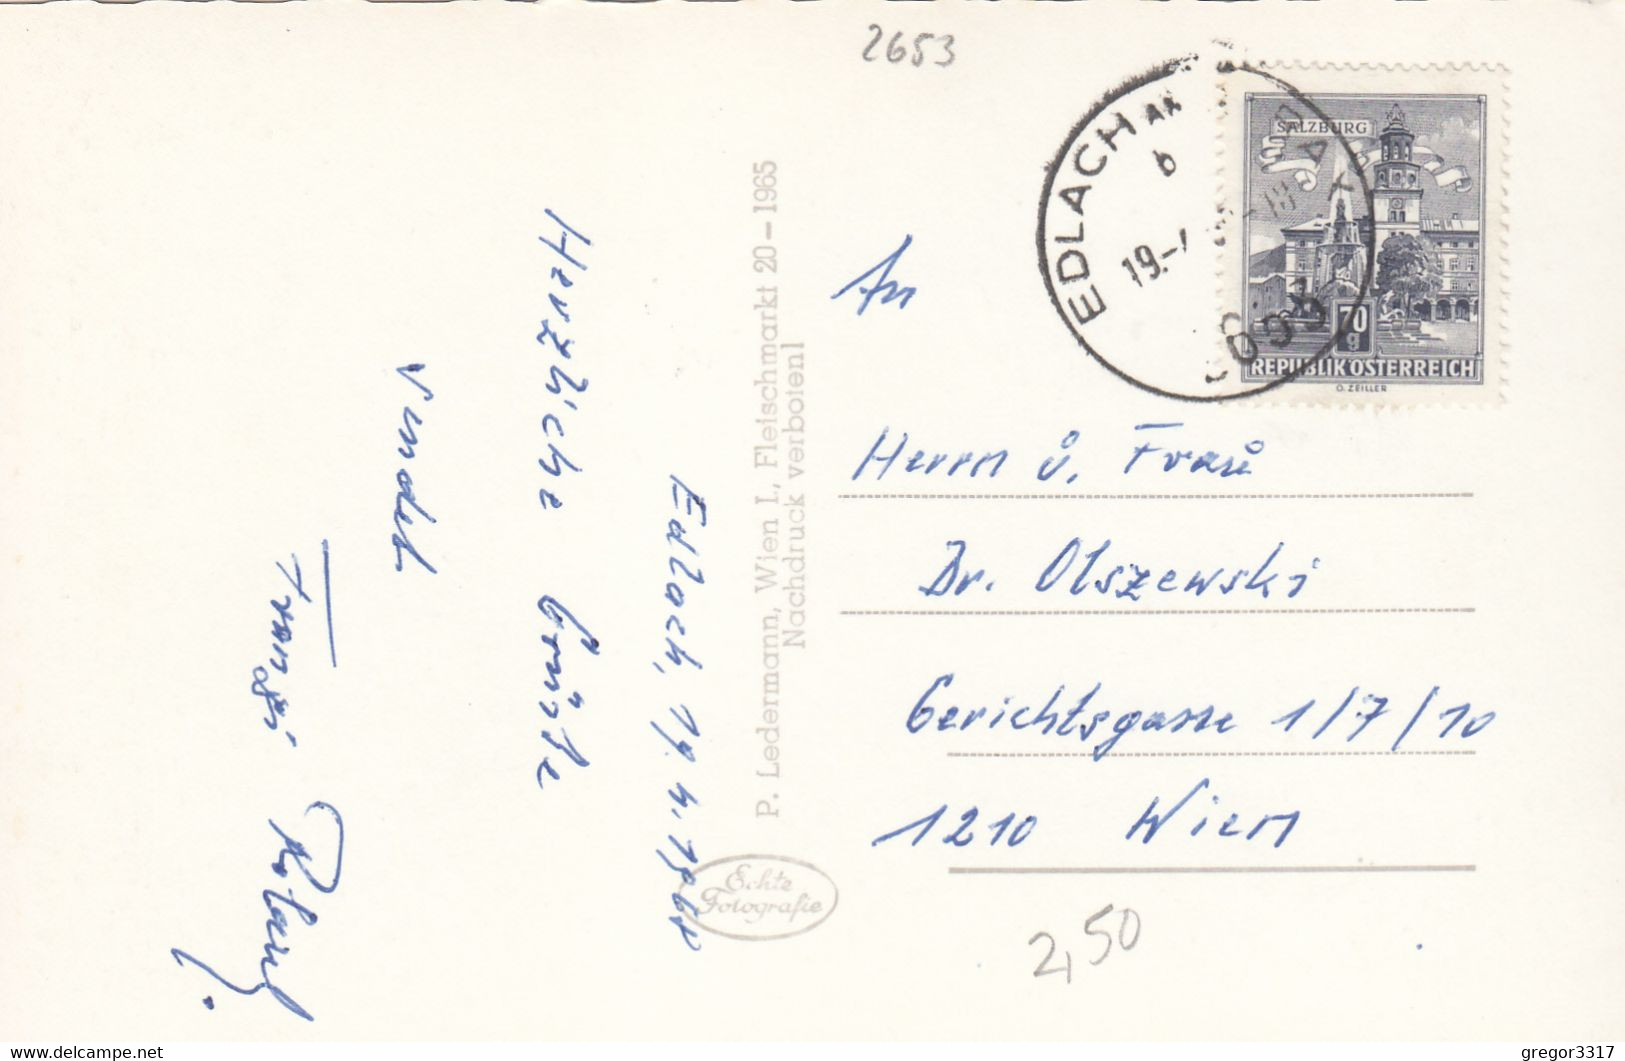 2653
SALZBURG
70
g
REPUBLIK ÖSTERREICH
O. ZEILLER
EDLACH AN
b
19.-
Edlach, 19. 4. 1968
Herzliche Grüße
sendet
Roland
P. Ledermann, Wien I., Fleischmarkt 20 – 1965
Nachdruck verboten!
Echte
Fotografie
An
Herrn u. Frau
Dr. Olszewski
Gerichtsgasse 1/7/10
1210 Wien
2,50
www.delcampe.net
gregor3317